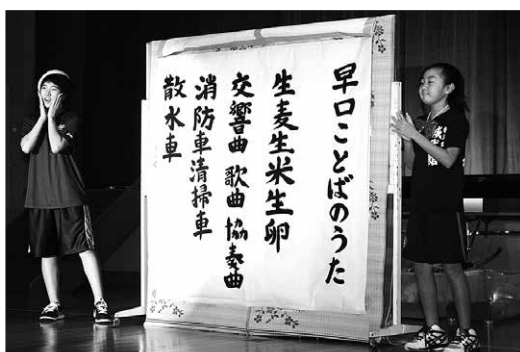 早口ことばのうた
生麦生米生卵
交響曲 歌曲 協奏曲
消防車清掃車
散水車